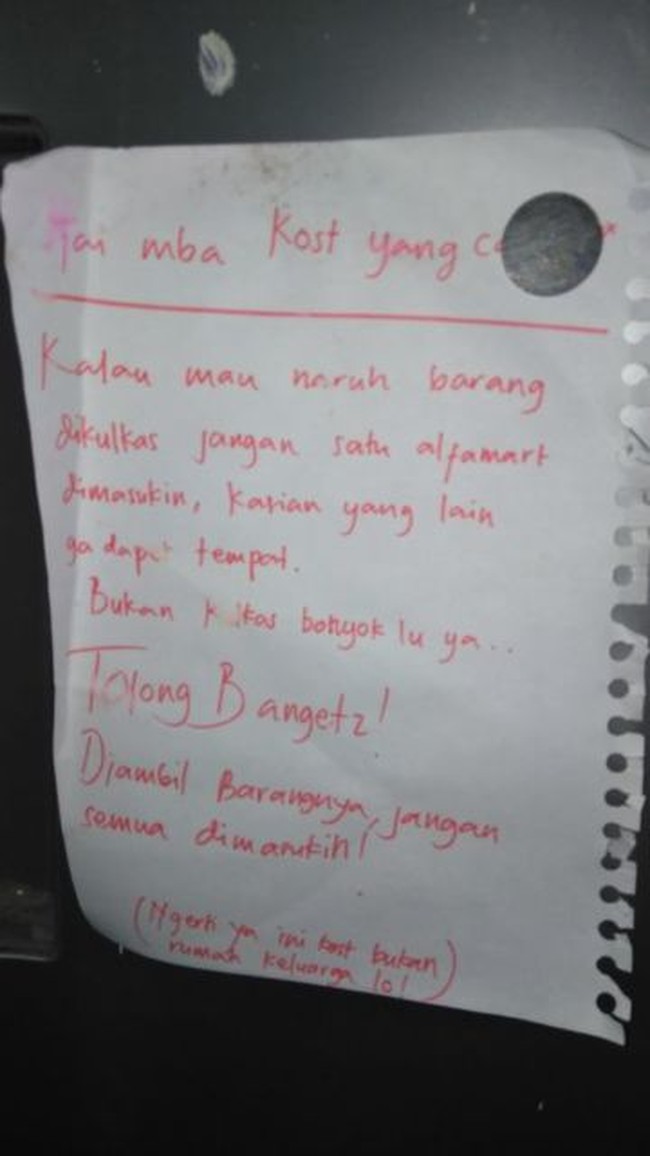 mba Kost yang
Kalau mau naruh barang
dikulkas jangan satu alfamart
dimasukin, kasian yang lain
ga dapat tempat.
Bukan kulkas bonyok lu ya..
Tolong Bangetz!
Diambil Barangnya, jangan
semua dimasukin!
(Ngerti ya ini kost bukan
rumah keluarga lo!)